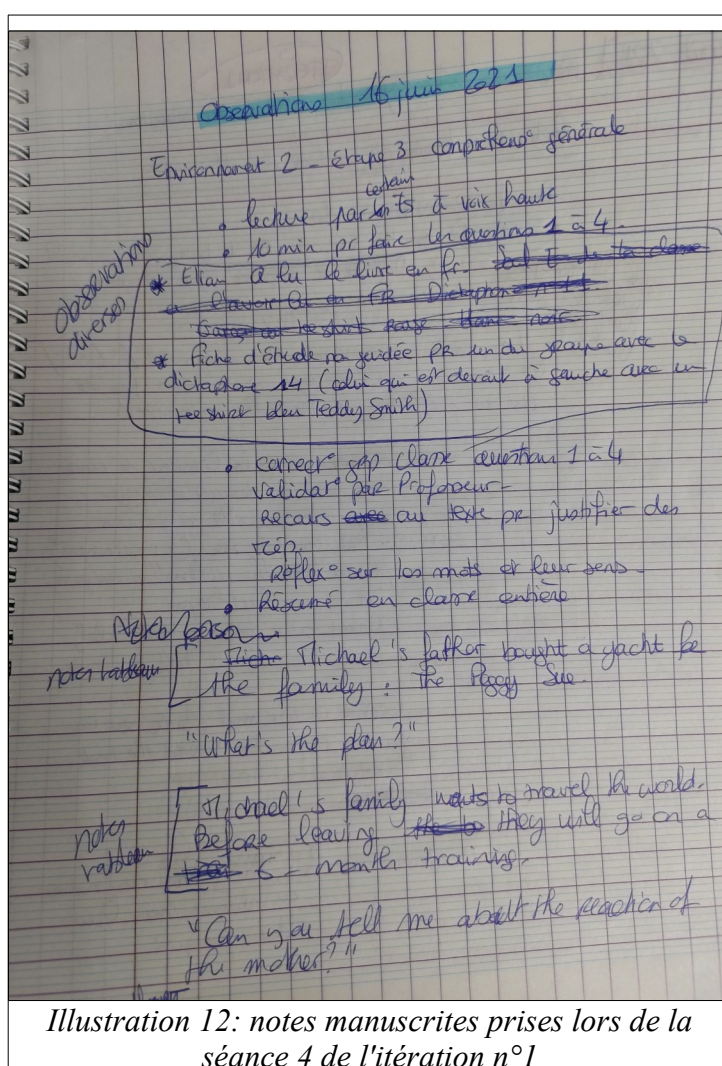 Observations 16 juin 2021
Environnement 2 - étape 3 compréhens° générale
certains
• lecture par èts à voix haute
• 10 min pr faire les questions 1 à 4.
Observations
diverses
* Elian a lu le livre en fr.
* fiche d'étude na guidée pr un du groupe avec le
dictaphone 14 (celui qui est devant à gauche avec un
tee shirt bleu Teddy Smith)
• correct° grp classe question 1 à 4
validat° par Professeur
Recours au texte pr justifier des
rép.
Réflex° sur les mots et leur sens.
• Résumé en classe entière
notes tableau
Michael's father bought a yacht for
the family : the Peggy Sue.
"What's the plan?"
notes
tableau
Michael's family wants to travel the world.
Before leaving they will go on a
6-month training.
"Can you tell me about the reaction of
the mother?"
Illustration 12: notes manuscrites prises lors de la
séance 4 de l'itération n°1